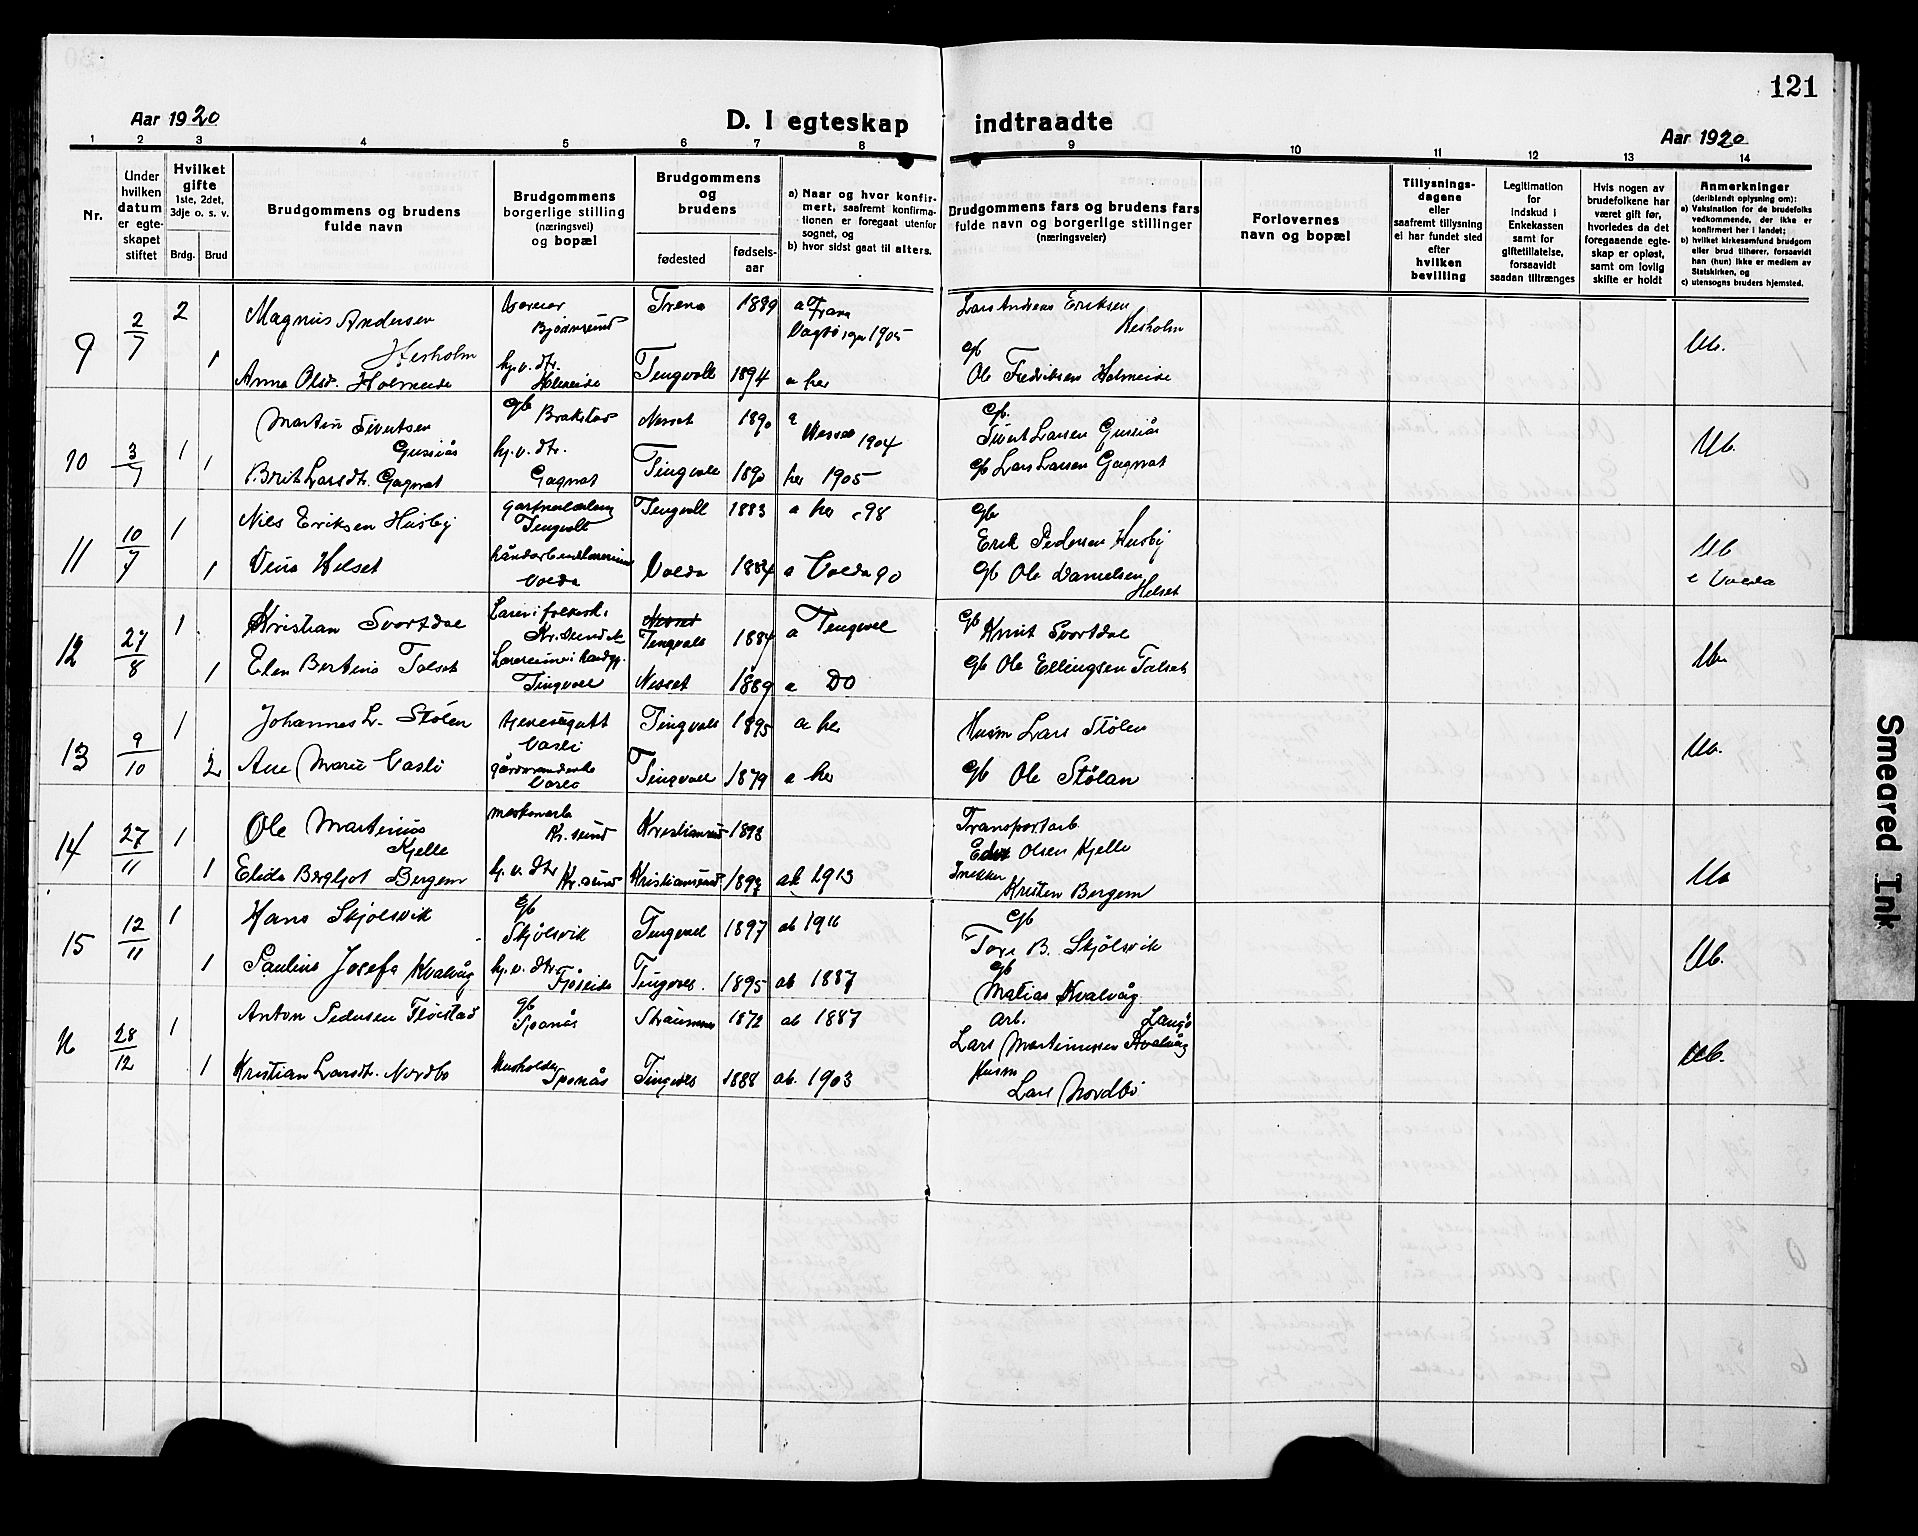 121
Aar 1920
D. I egteskap indtraadte
Aar 1920
1 2 3 4 5 6 7 8 9 10 11 12 13 14
Nr.
Under hvilken datum er egteskapet stiftet
Hvilket gifte 1ste, 2det, 3dje o. s. v.
Brdg. Brud
Brudgommens og brudens fulde navn
Brudgommens borgerlige stilling (næringsvei) og bopæl
Brudgommens og brudens
fødested
fødsels-aar
a) Naar og hvor konfir-mert, saafremt konfirma-tionen er foregaat utenfor sognet, og
b) hvor sidst gaat til alters.
Brudgommens fars og brudens fars fulde navn og borgerlige stillinger (næringsveier)
Forlovernes navn og bopæl
Tillysnings-dagene eller saafremt tillysning ei har fundet sted efter hvilken bevilling
Legitimation for indskud i Enkekassen samt for giftetillatelse, forsaavidt saadan tiltrænges
Hvis nogen av brudefolkene har været gift før, hvorledes da det foregaaende egte-skap er opløst, samt om lovlig skifte er holdt
Anmerkninger (deriblandt oplysning om):
a) Vaksination for de brudefolks vedkommende, der ikke er konfirmert her i landet;
b) hvilket kirkesamfund brudgom eller brud tilhører, forsaavidt han (hun) ikke er medlem av Statskirken, og
c) utensogns bruders hjemsted.
9 2/7 2 Magnus Andersen Hesholm Bjørnsund Træna 1899 a Træna 1905 Lars Andreas Eriksen Hesholm
1 Anna Olsd. Holmeide hj.v.dtr. Holmeide Tingvoll 1894 a her gb Ole Fredriksen Holmeide
10 3/7 1 Martin Sivertsen Gussiås gb Brakstad Nesset 1890 a Nesset 1904 gb. Sivert Larsen Gussiås
1 Brit Larsdtr. Gagnat hj.v.dtr. Gagnat Tingvoll 1890 her 1905 gb Lars Larsen Gagnat
11 10/7 1 Nils Eriksen Husby Tingvoll Tingvoll 1883 a her 98 gb Erik Pedersen Husby
1 Helset Volda Volda 1884 a Volda 90 gb Ole Danielsen Helset
c Volda
12 27/8 1 Kristian Svortdal Kr.sund N Nesset Tingvoll 1884 a Tingvoll gb Knut Svortdal
1 Elen Bertine Talset Tingvoll Nesset 1889 a DO gb Ole Ellingsen Talset
13 9/10 1 Johannes L. Stølen Vasli Tingvoll 1895 a her Husm Lars Stølen
2 Ane Marie Vasli Vasli Tingvoll 1879 a her gb Ole Stølan
14 27/11 1 Ole Martinius Kjelle Kr.sund Kristiansund 1898 Transportarb. Olsen Kjelle
1 Elida Bergljot Bergem hj.v.dtr Kr.sund Kristiansund ab 1913 Snekker Kristen Bergem
15 12/11 1 Hans Skjølsvik gb Skjølsvik Tingvoll 1897 ab 1916 gb Tore B. Skjølsvik
1 Pauline Josefa Kvalvåg hj.v.dtr Fjøseide Tingvoll 1895 ab 1887 gb Matias Kvalvåg
16 28/12 1 Anton Pedersen Fløistad gb Spånås 1872 ab 1887 arb. Lars Martinussen Kvalvåg
1 Kristian Larsdtr. Nordbø Husholder Spånås Tingvoll 1888 ab. 1903 Husm Lars Nordbø
Smeared Ink